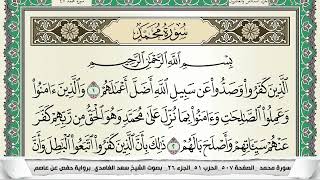 سُورَةُ مُحَمَّدٍ
بِسْمِ اللَّهِ الرَّحْمَٰنِ الرَّحِيمِ
الَّذِينَ كَفَرُوا وَصَدُّوا عَن سَبِيلِ اللَّهِ أَضَلَّ أَعْمَالَهُمْ ١ وَالَّذِينَ ءَامَنُوا
وَعَمِلُوا الصَّالِحَاتِ وَءَامَنُوا بِمَا نُزِّلَ عَلَىٰ مُحَمَّدٍ وَهُوَ الْحَقُّ مِن رَّبِّهِمْ كَفَّرَ
عَنْهُمْ سَيِّـَٔاتِهِمْ وَأَصْلَحَ بَالَهُمْ ٢ ذَٰلِكَ بِأَنَّ الَّذِينَ كَفَرُوا اتَّبَعُوا الْبَاطِلَ وَأَنَّ
سورة محمد الصفحة ٥٠٧ الحزب ٥١ الجزء ٢٦ بصوت الشيخ سعد الغامدي برواية حفص عن عاصم